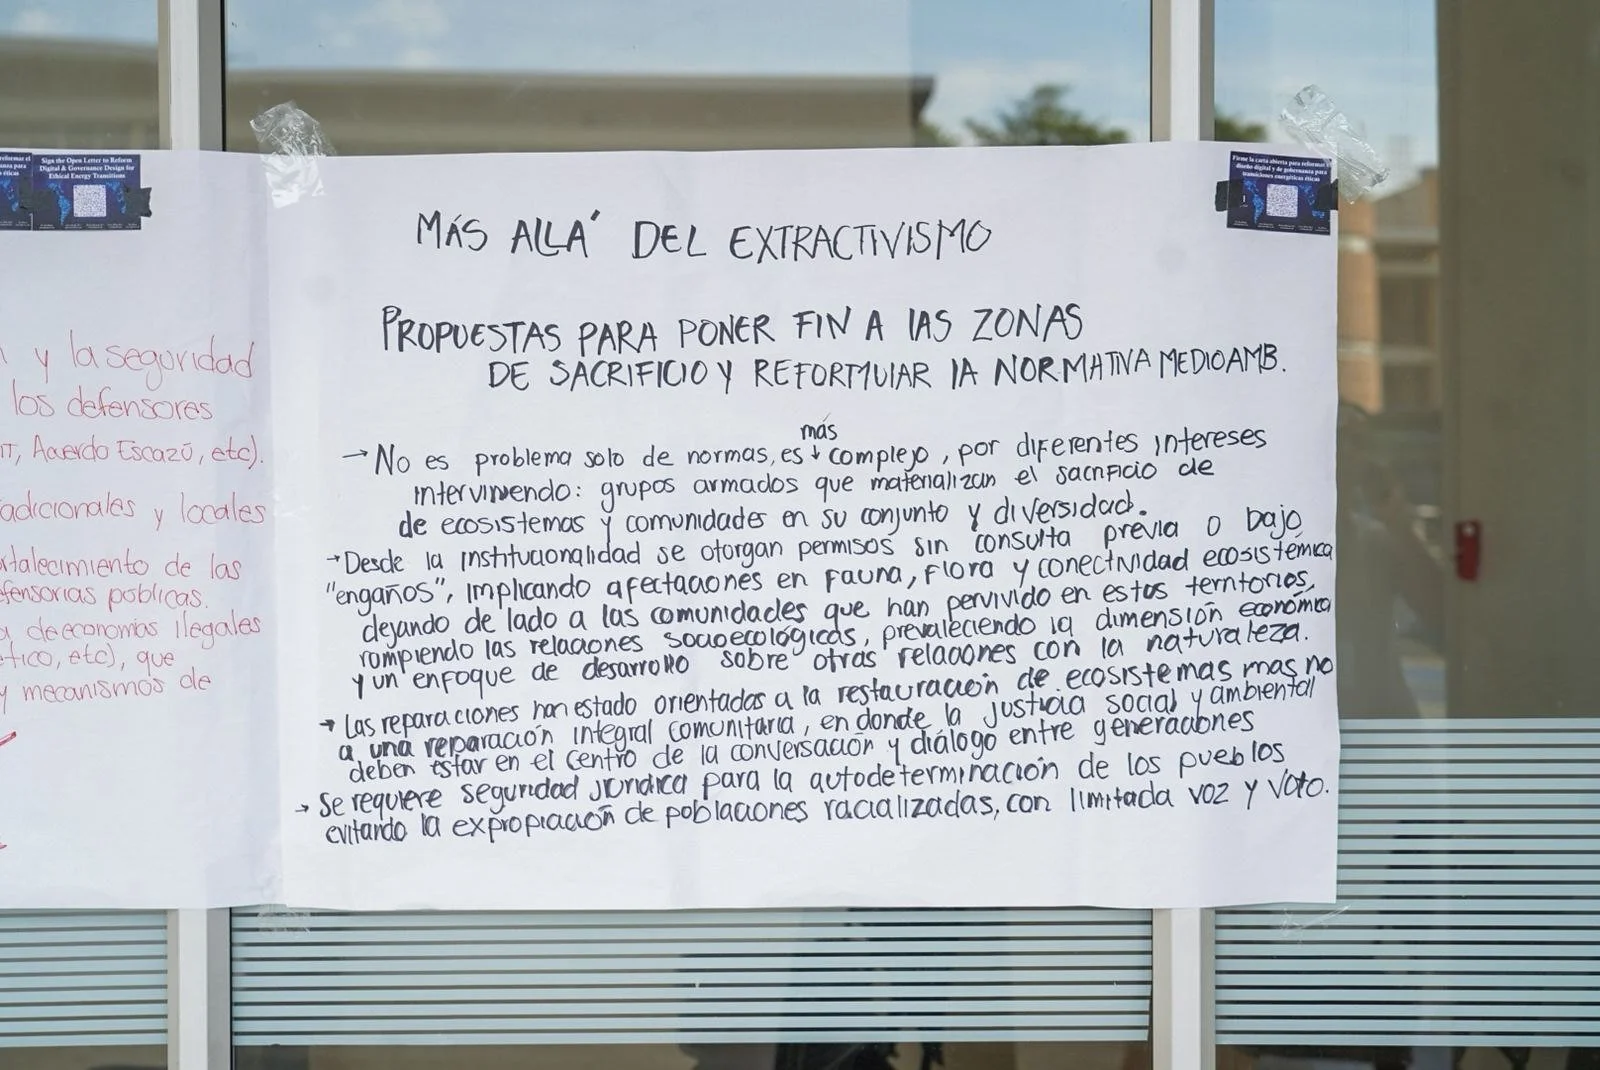 reformar el
anza para
s éticas
Sign the Open Letter to Reform
Digital & Governance Design for
Ethical Energy Transitions
Firme la carta abierta para reformar el
diseño digital y de gobernanza para
transiciones energéticas éticas
y la seguridad
los defensores
IT, Acuerdo Escazú, etc).
adicionales y locales
rtalecimiento de las
efensorias públicas.
de economías ilegales
ético, etc), que
y mecanismos de
MÁS ALLÁ DEL EXTRACTIVISMO
PROPUESTAS PARA PONER FIN A LAS ZONAS
DE SACRIFICIO Y REFORMULAR LA NORMATIVA MEDIOAMB.
más
→ No es problema solo de normas, es ↓ complejo, por diferentes intereses
interviniendo: grupos armados que materializan el sacrificio de
de ecosistemas y comunidades en su conjunto y diversidad.
→ Desde la institucionalidad se otorgan permisos sin consulta previa o bajo
"engaños", implicando afectaciones en fauna, flora y conectividad ecosistémica
dejando de lado a las comunidades que han pervivido en estos territorios,
rompiendo las relaciones socioecológicas, prevaleciendo la dimensión económica
y un enfoque de desarrollo sobre otras relaciones con la naturaleza.
→ Las reparaciones han estado orientadas a la restauración de ecosistemas mas no
a una reparación integral comunitaria, en donde la justicia social y ambiental
deben estar en el centro de la conversación y diálogo entre generaciones
→ Se requiere seguridad jurídica para la autodeterminación de los pueblos
evitando la expropiación de poblaciones racializadas, con limitada voz y voto.